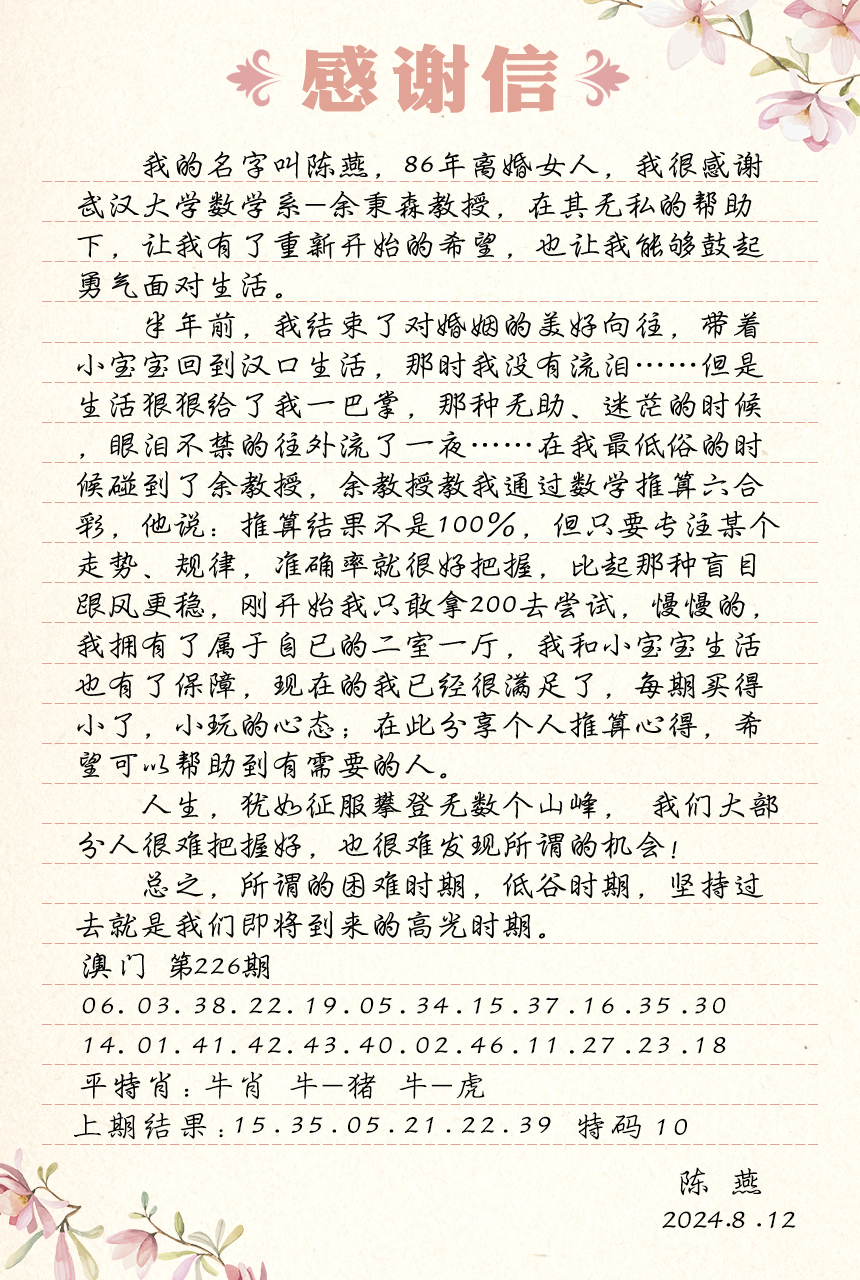 感谢信
我的名字叫陈燕，86年离婚女人，我很感谢
武汉大学数学系—余秉森教授，在其无私的帮助
下，让我有了重新开始的希望，也让我能够鼓起
勇气面对生活。
半年前，我结束了对婚姻的美好向往，带着
小宝宝回到汉口生活，那时我没有流泪……但是
生活狠狠给了我一巴掌，那种无助、迷茫的时候
，眼泪不禁的往外流了一夜……在我最低俗的时
候碰到了余教授，余教授教我通过数学推算六合
彩，他说：推算结果不是100%，但只要专注某个
走势、规律，准确率就很好把握，比起那种盲目
跟风更稳，刚开始我只敢拿200去尝试，慢慢的，
我拥有了属于自已的二室一厅，我和小宝宝生活
也有了保障，现在的我已经很满足了，每期买得
小了，小玩的心态；在此分享个人推算心得，希
望可以帮助到有需要的人。
人生，犹如征服攀登无数个山峰， 我们大部
分人很难把握好，也很难发现所谓的机会！
总之，所谓的困难时期，低谷时期，坚持过
去就是我们即将到来的高光时期。
澳门 第226期
06.03.38.22.19.05.34.15.37.16.35.30
14.01.41.42.43.40.02.46.11.27.23.18
平特肖：牛肖 牛—猪 牛—虎
上期结果：15.35.05.21.22.39 特码 10
陈 燕
2024.8.12